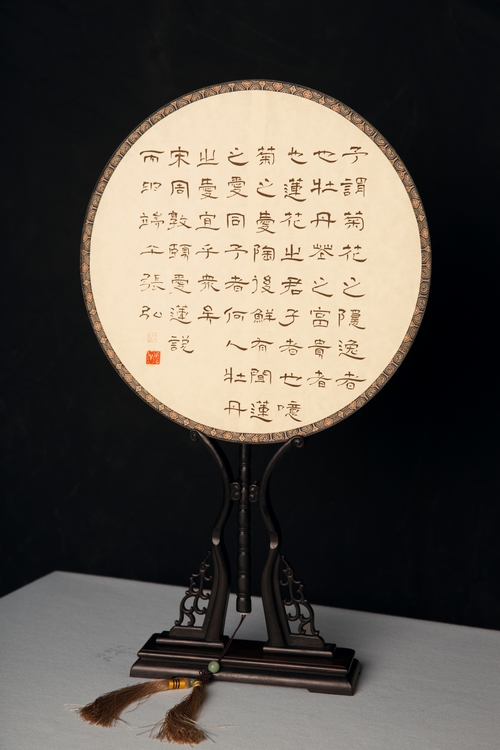 予謂菊花之隱逸者
也牡丹花之富貴者
也蓮花之君子者也噫
菊之愛陶後鮮有聞蓮
之愛同予者何人牡丹
之愛宜乎衆矣
宋周敦頤愛蓮說
丙申端午張弘